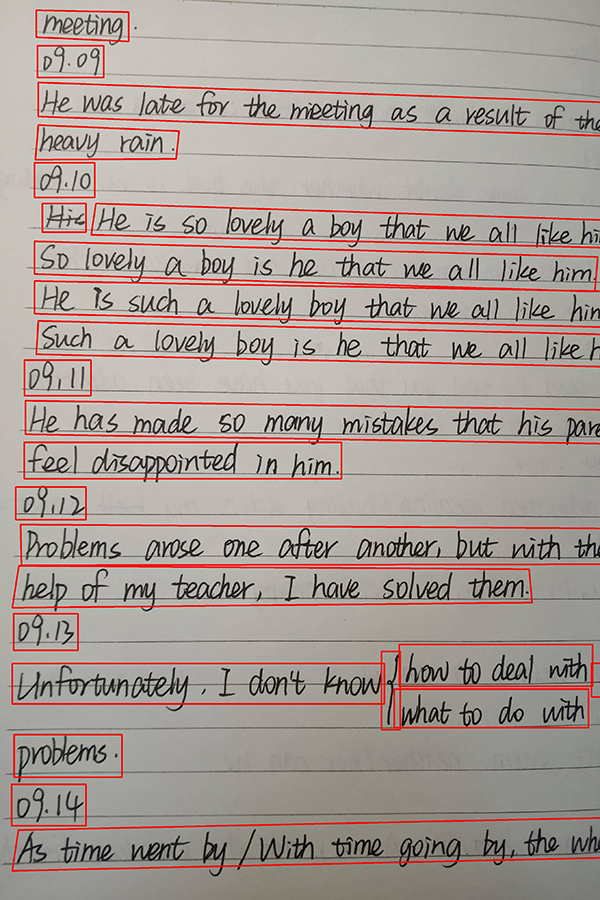 meeting.
09.09
He was late for the meeting as a result of the
heavy rain.
09.10
His He is so lovely a boy that we all like hi
So lovely a boy is he that we all like him.
He is such a lovely boy that we all like him
Such a lovely boy is he that we all like h
09.11
He has made so many mistakes that his pare
feel disappointed in him.
09.12
Problems arose one after another, but with the
help of my teacher, I have solved them.
09.13
Unfortunately, I don't know { how to deal with
what to do with
problems.
09.14
As time went by / With time going by, the who